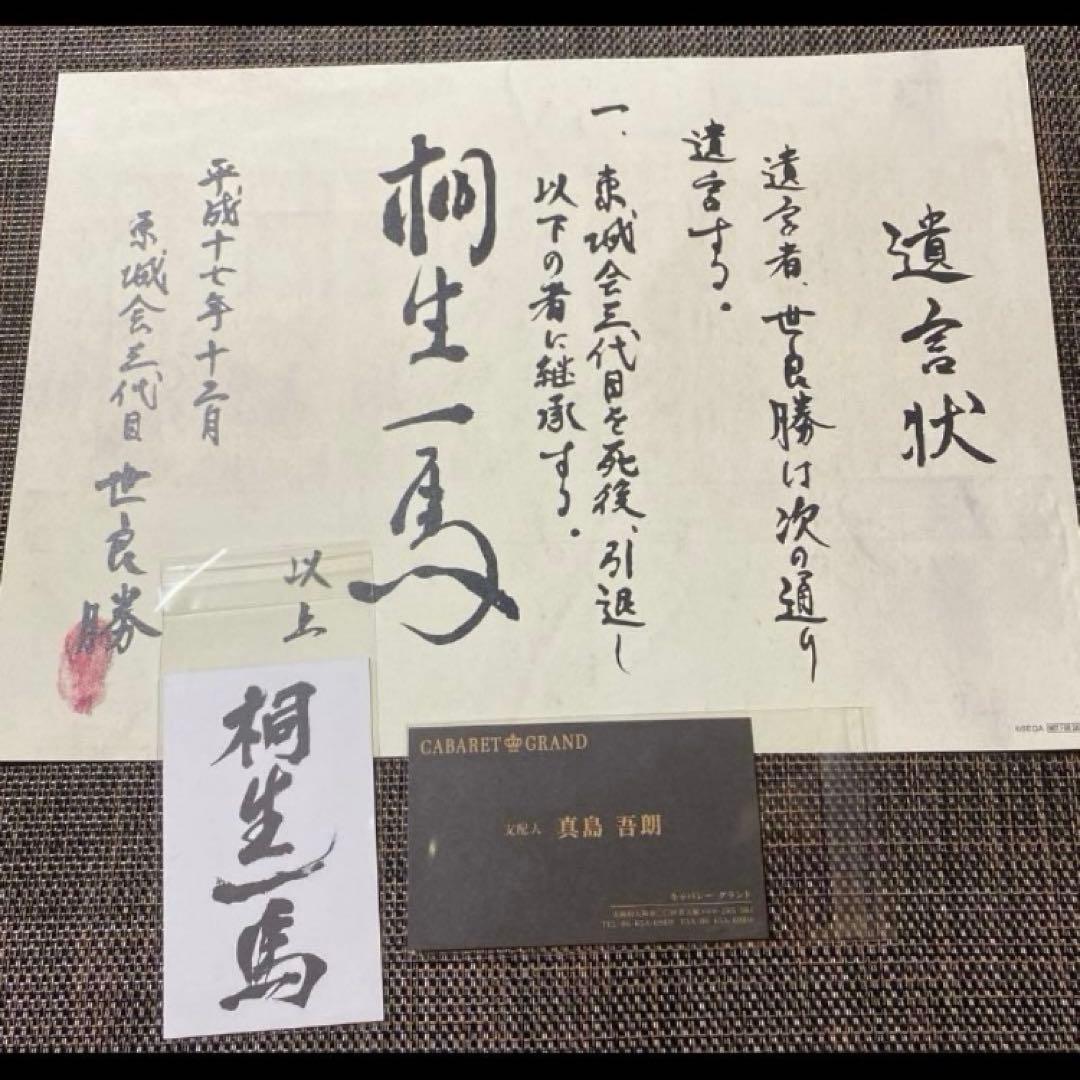 遺言状
遺言者、世良勝は次の通り
遺言する。
一、東城会三代目を死後、引退し
以下の者に継承する。
桐生一馬
以上
平成十七年十二月
東城会三代目 世良勝
桐生一馬
CABARET GRAND
支配人 真島 吾朗
キャバレー グランド
©SEGA